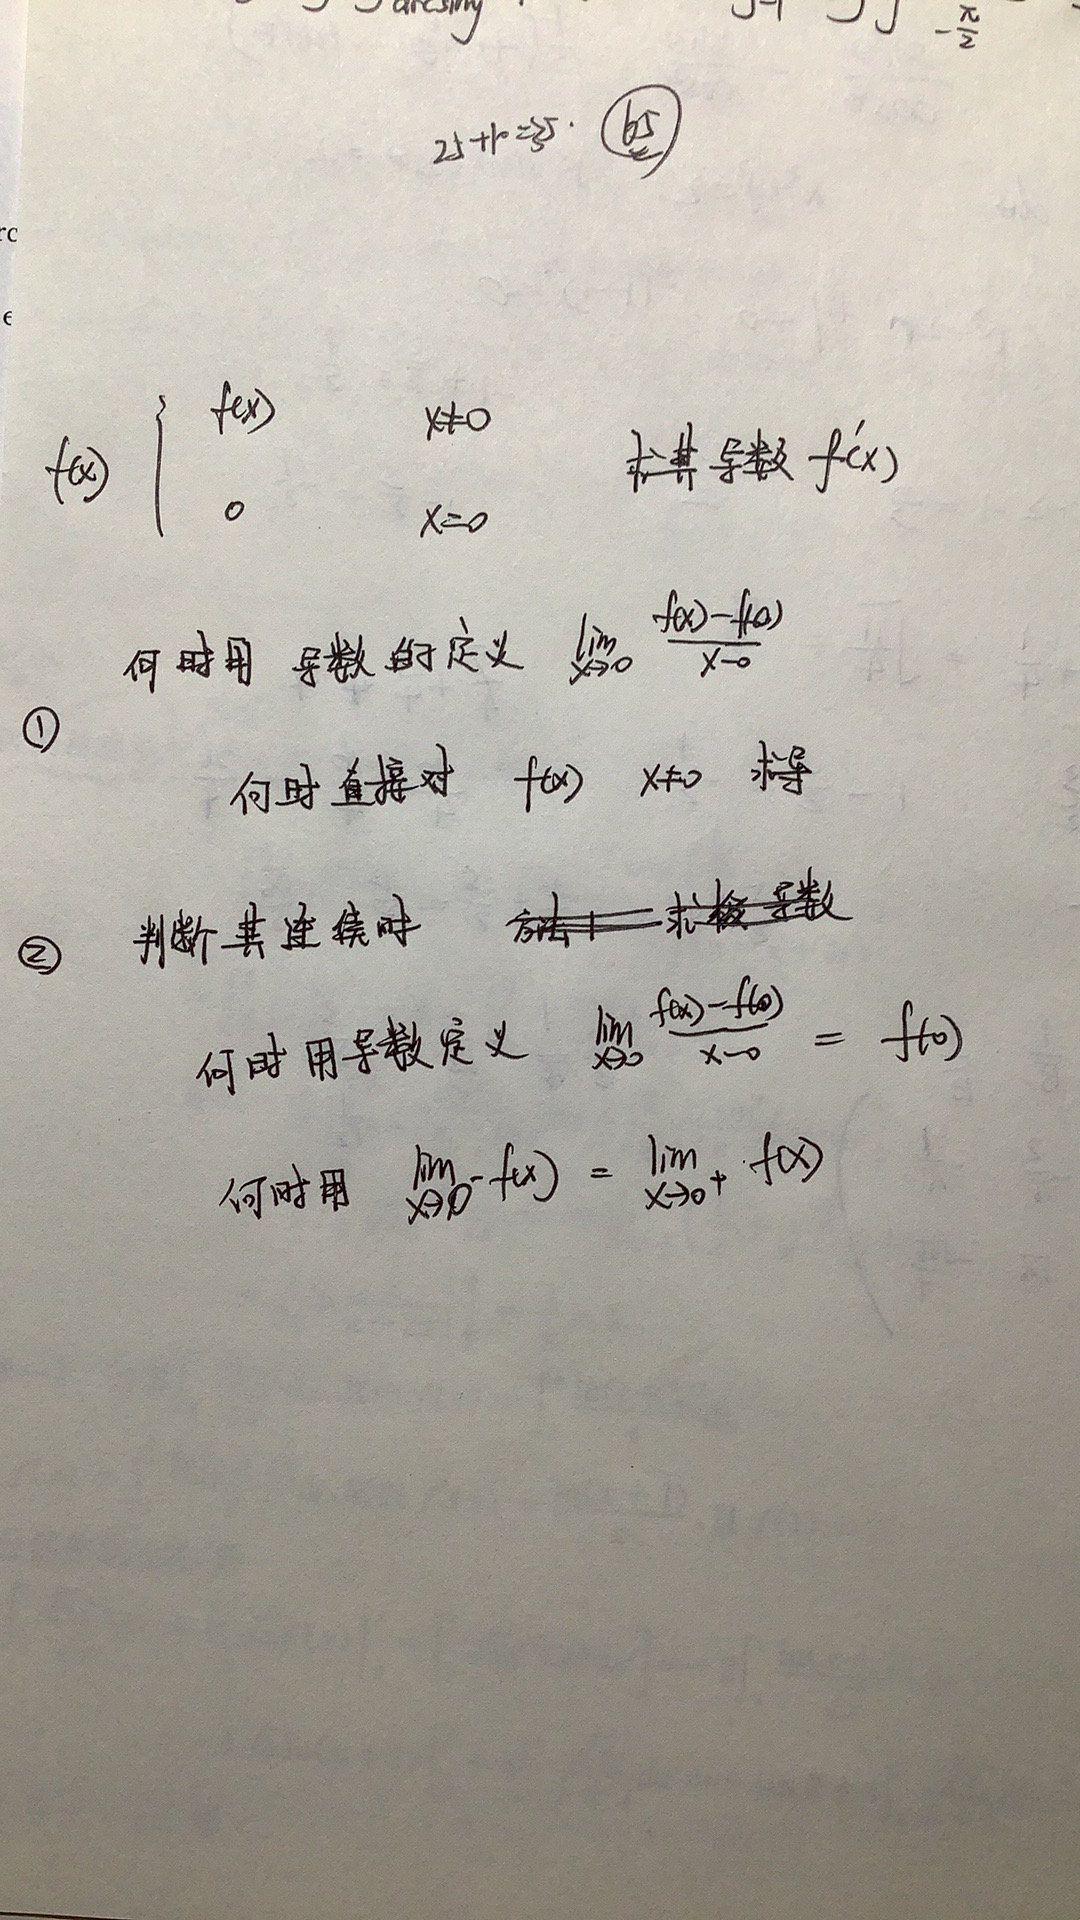 arcsiny
-π/2
25+10=35. 65
rc
e
f(x) { f(x) x≠0
0 x=0
求其导数 f'(x)
① 何时用 导数的定义 lim x→0 f(x)-f(0)/x-0
何时直接对 f(x) x≠0 求导
② 判断其连续时 方法1 求极导数
何时用导数定义 lim x→0 f(x)-f(0)/x-0 = f(0)
何时用 lim x→0⁻ f(x) = lim x→0⁺ f(x)